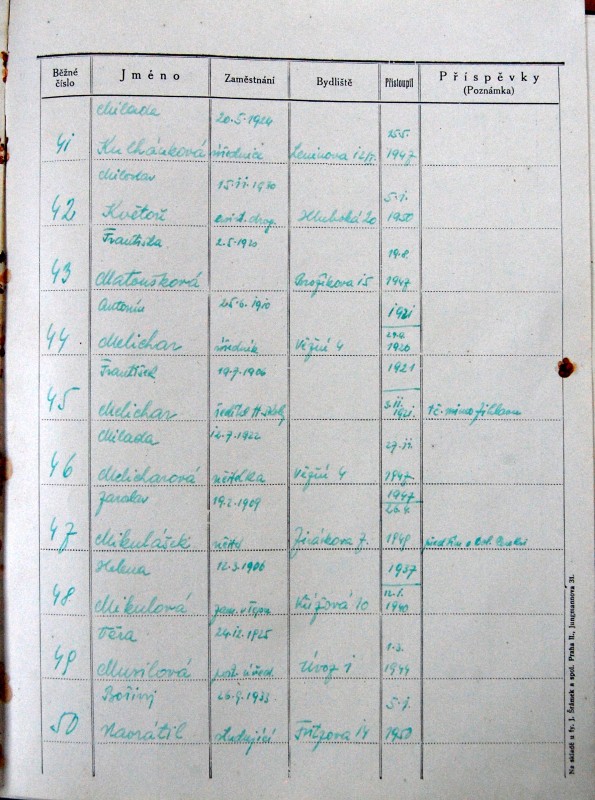 Běžné číslo Jméno Zaměstnání Bydliště Přistoupil Příspěvky (Poznámka)
Milada 20.5.1924 25.5.
41 Kuchánková úřednice Leninova 1947
Miloslav 15.11.1930 5.1.
42 Květoň drog. Hluboká 20 1950
Františka 2.5.1920 19.8.
43 Matoušková Brožíkova 15 1947
Antonín 25.6.1910 1921
44 Melichar úředník Věžní 4 1920
František 19.7.1906 1921
45 Melichar ředitel škol 5.11. 1921 tč. mimo Jihlavu
Milada 12.7.1922 27.11.
46 Melicharová učitelka Věžní 4 1947
Jaroslav 19.2.1909 1947
26.4.
47 Mikulášek učitel Jiráskova 7. 1948
Helena 12.3.1906 1937
12.1.
48 Mikulová Křížová 10 1940
Věra 24.12.1925 1.3.
49 Musilová pošt. úřed. Úvoz 1 1944
Bořivoj 26.9.1933 5.1.
50 Navrátil studující Fritzova 14 1950
Na skladě u fy. J. Šrámek a spol. Praha II., Jungmannova 31.